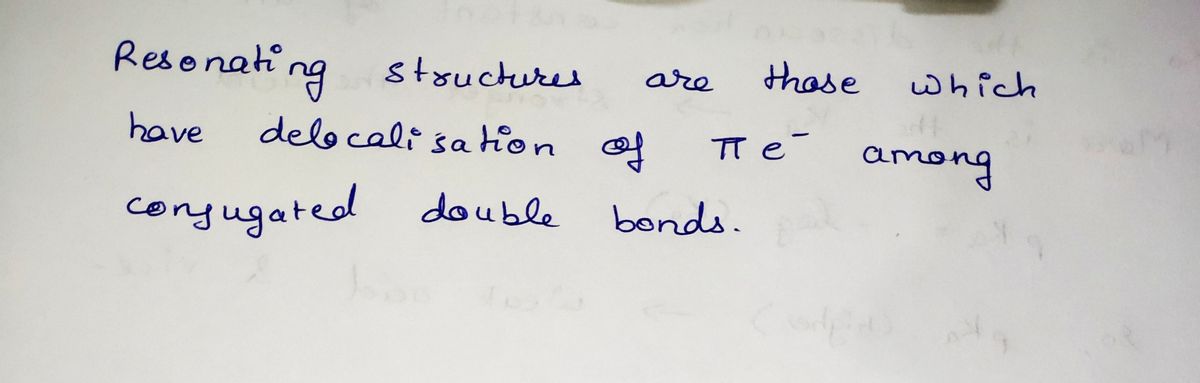 Resonating structures are those which
have delocalisation of π e⁻ among
conjugated double bonds.